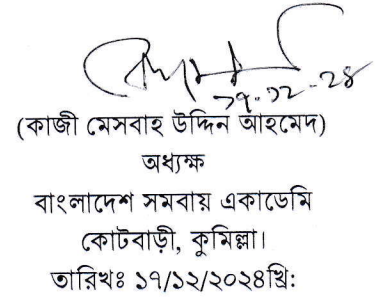 ১৭-১২-২৪
(কাজী মেসবাহ উদ্দিন আহমেদ)
অধ্যক্ষ
বাংলাদেশ সমবায় একাডেমি
কোটবাড়ী, কুমিল্লা।
তারিখঃ ১৭/১২/২০২৪খ্রি: